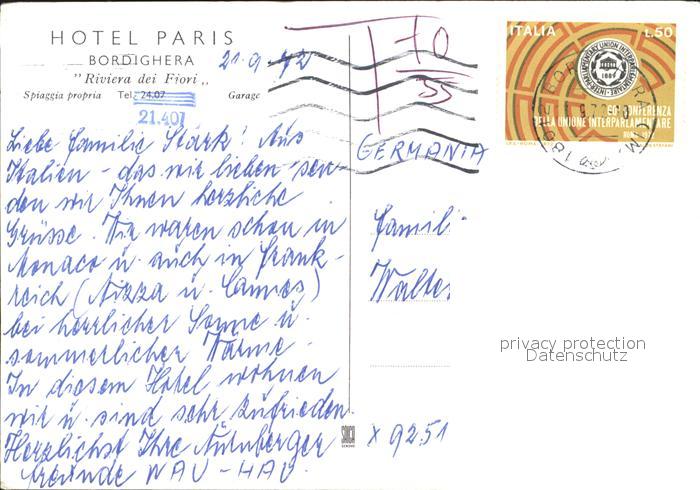 HOTEL PARIS
BORDIGHERA
"Riviera dei Fiori"
Spiaggia propria Tel. 24.07 Garage
21.407
21.9.72
T 70
55
ITALIA L.50
60ª CONFERENZA
DELLA UNIONE INTERPARLAMENTARE
Liebe Familie Stark! Aus
Italien - das wir lieben - sen-
den wir Ihnen herzliche
Grüsse. Wir waren schon in
Monaco u. auch in Frank-
reich (Nizza u. Cannes)
bei herrlicher Sonne u.
sommerlicher Wärme.
In diesem Hotel wohnen
wir u. sind sehr zufrieden.
Herzlichst Ihre Nürnberger
Freunde WAU-HAU.
GERMANIA
Famili
Walte
X 9251
privacy protection
Datenschutz